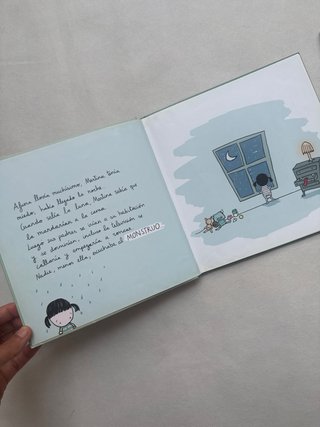 Afuera llovía muchísimo, Martina tenía
miedo, había llegado la noche.
Cuando salía la luna, Martina sabía que
la mandarían a la cama.
Luego sus padres se irían a su habitación
y se dormirían, incluso la televisión se
callaría y empezaría a roncar.
Nadie, menos ella, escuchaba al MONSTRUO.